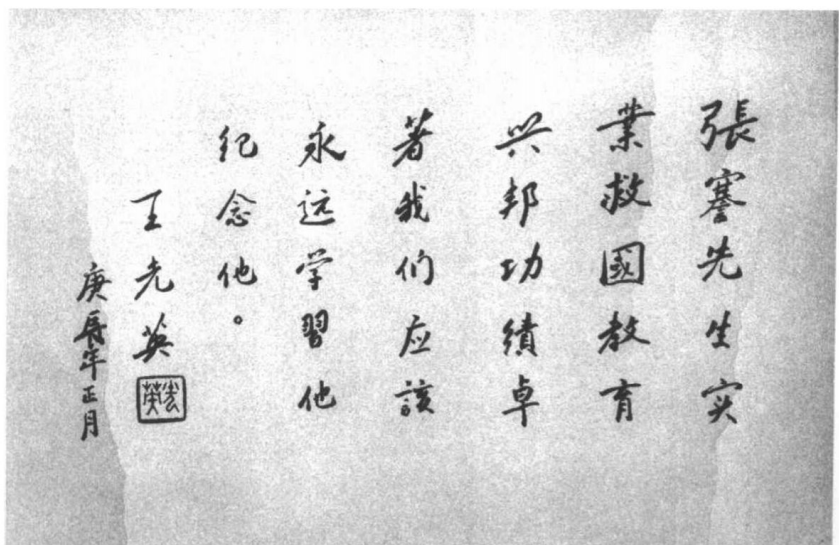 張謇先生实
業救國教育
兴邦功績卓
著我们应該
永远学習他
纪念他。
王光英
庚辰年正月